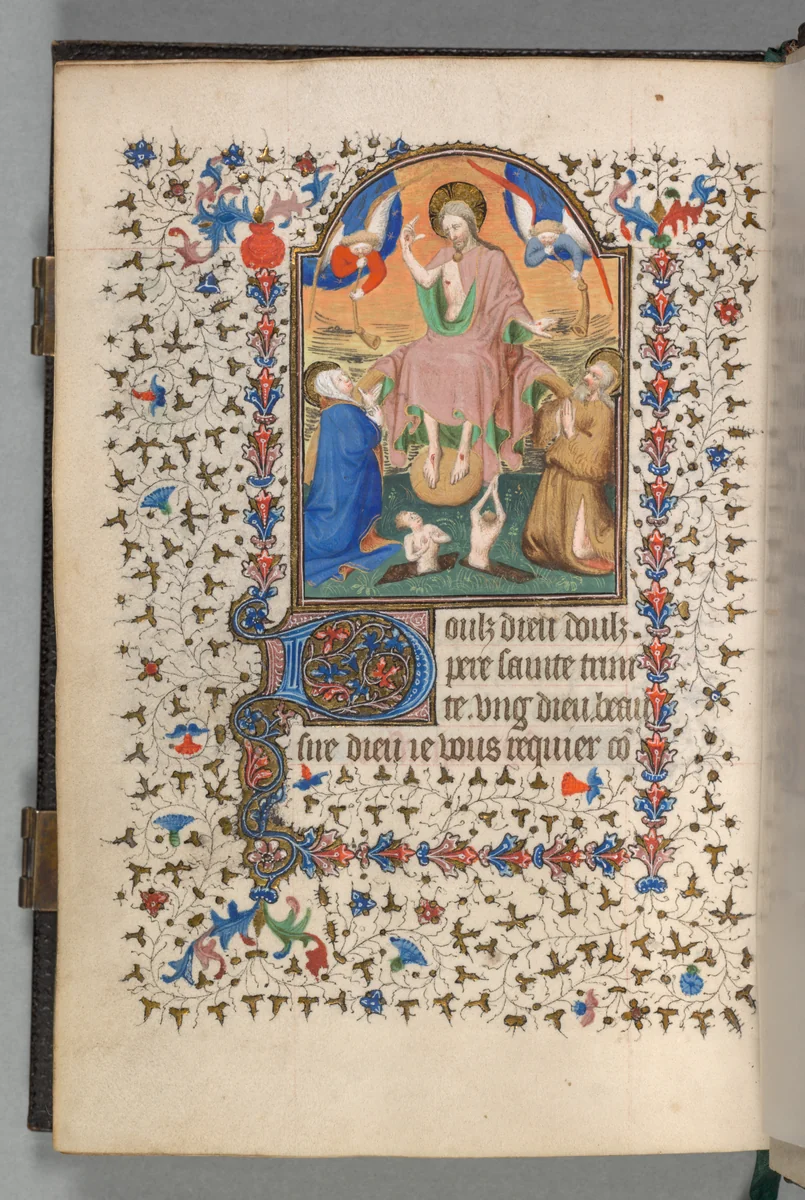 Doulz dieu doulz.
pere sainte trini
te. vng dieu. beau
sire dieu ie vous requier cō